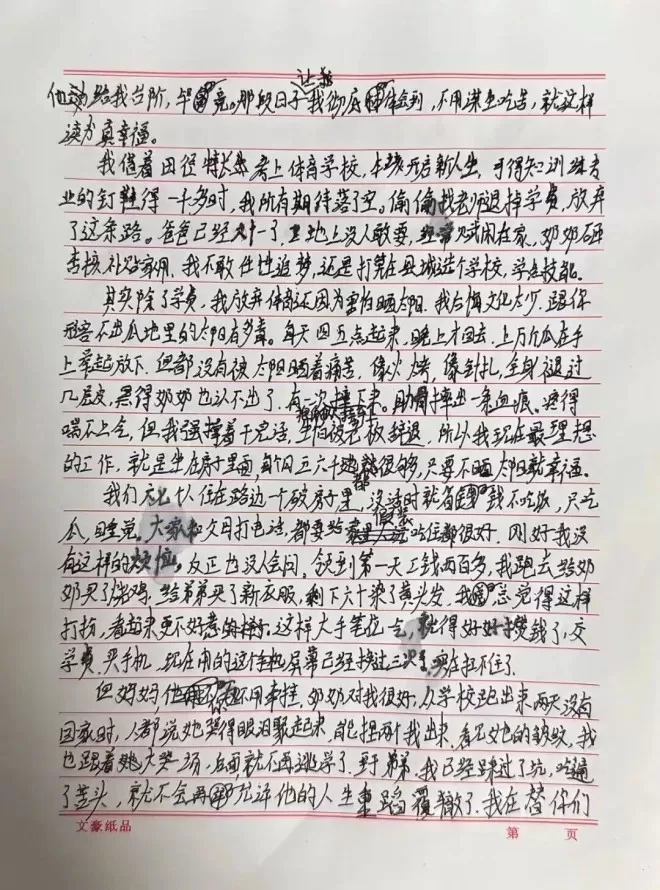 让我
他 给我台阶,毕竟。那段日子我彻底体会到,不用谋生吃苦,就这样
读书真幸福。
我借着田径特长 考上体育学校,本该开启新人生,可得知训练专
业的钉鞋得一千多时,我所有期待落了空。偷偷找老师退掉学费,放弃
了这条路。爸爸已经 了,工地上没人敢要,经常 闲在家,奶奶砸
杏核补贴家用,我不敢任性追梦,还是打算在县城选个学校,学点技能。
其实除了学费,我放弃体育还因为害怕晒太阳。我后悔文化太少,跟你
形容不出瓜地里的太阳有多毒。每天四五点起来,晚上才回去,上万个瓜在手
上举起放下,但都没有被太阳晒着痛苦,像火烤,像针扎,全身褪过
几层皮,黑得奶奶也认不出了。有一次摔下来。肋骨摔出一条血痕。疼得
喘不上气,但我强撑着干完活,生怕被老板辞退,所以我现在最理想
的工作,就是坐在房子里面,每个月五六千 都很够,只要不晒太阳就幸福。
我们 住在路边一个破房子里,没活时就 钱不吃饭,只吃
瓜、睡觉。大家和父母打电话,都要给家里人 假装吃住都很好。刚好我没
有这样的烦恼。反正也没人会问。领到第一天工钱两百多,我跑去给奶
奶买了烧鸡,给弟弟买了新衣服,剩下六十染了黄头发,我总觉得这样
打扮,看起来更不好惹的样子。这样大手笔位一气,就得好好攒钱了,交
学费、买手机,现在用的这个手机屏幕已经换过三次了,实在扛不住了。
但妈妈他 不用牵挂,奶奶对我很好,从学校跑出来两天没有
回家时,人都说她哭得眼泪聚起来,能捏两个我出来,看见她的皱纹,我
也跟着她大哭一场,后面就不再逃学了。至于弟弟,我已经踩过了坑,吃遍
了苦头,就不会再允许他的人生重蹈覆辙了。我在替你们
文豪纸品
第 页